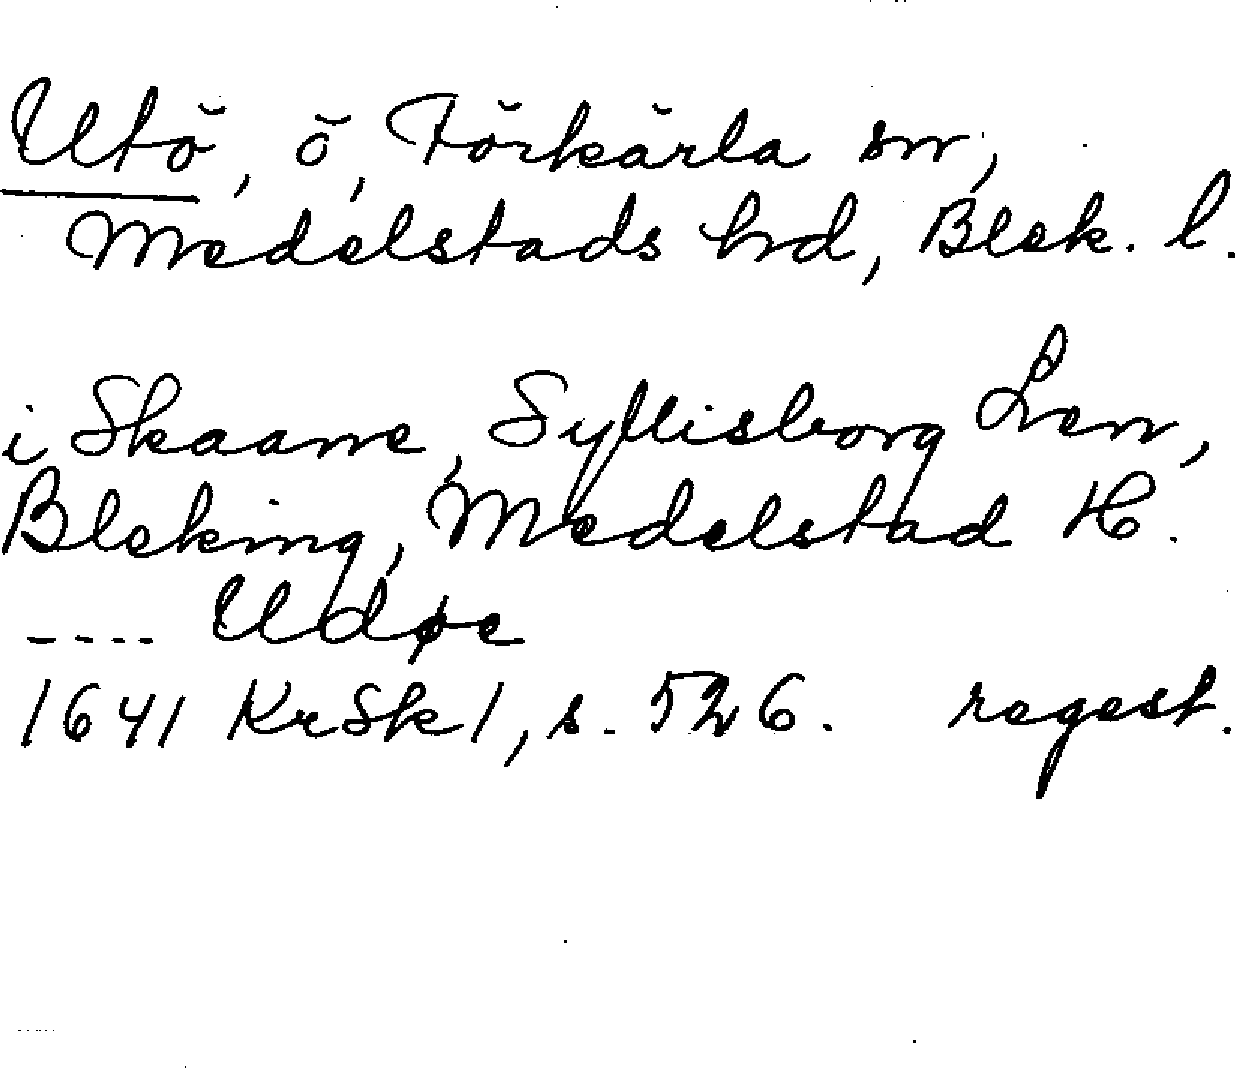 Utö, ö, Förkärla sn,
Medelstads hd, Blek. l.
i Skaane, Syllisborg Len,
Bleking, Medelstad H.
---- Udøe
1641 KrSk 1, s. 526. regest.